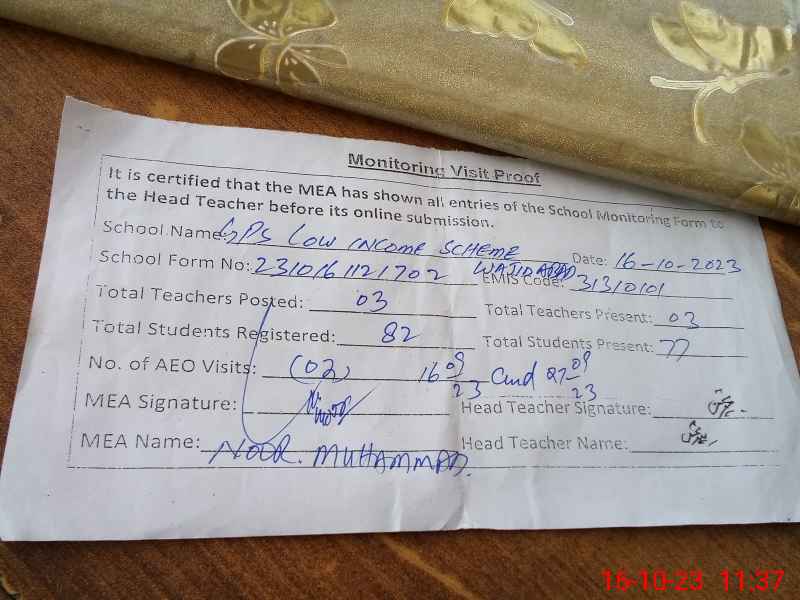 Monitoring Visit Proof
It is certified that the MEA has shown all entries of the School Monitoring Form to
the Head Teacher before its online submission.
School Name: GPS LOW INCOME SCHEME Date: 16-10-2023
School Form No: 231016 1121702 WAJIDABAD EMIS Code: 31310101
Total Teachers Posted: 03 Total Teachers Present: 03
Total Students Registered: 82 Total Students Present: 77
No. of AEO Visits: (02) 16 09/23 and 27 09/23
MEA Signature: Head Teacher Signature:
MEA Name: NOOR. MUHAMMAD. Head Teacher Name:
16-10-23 11:37